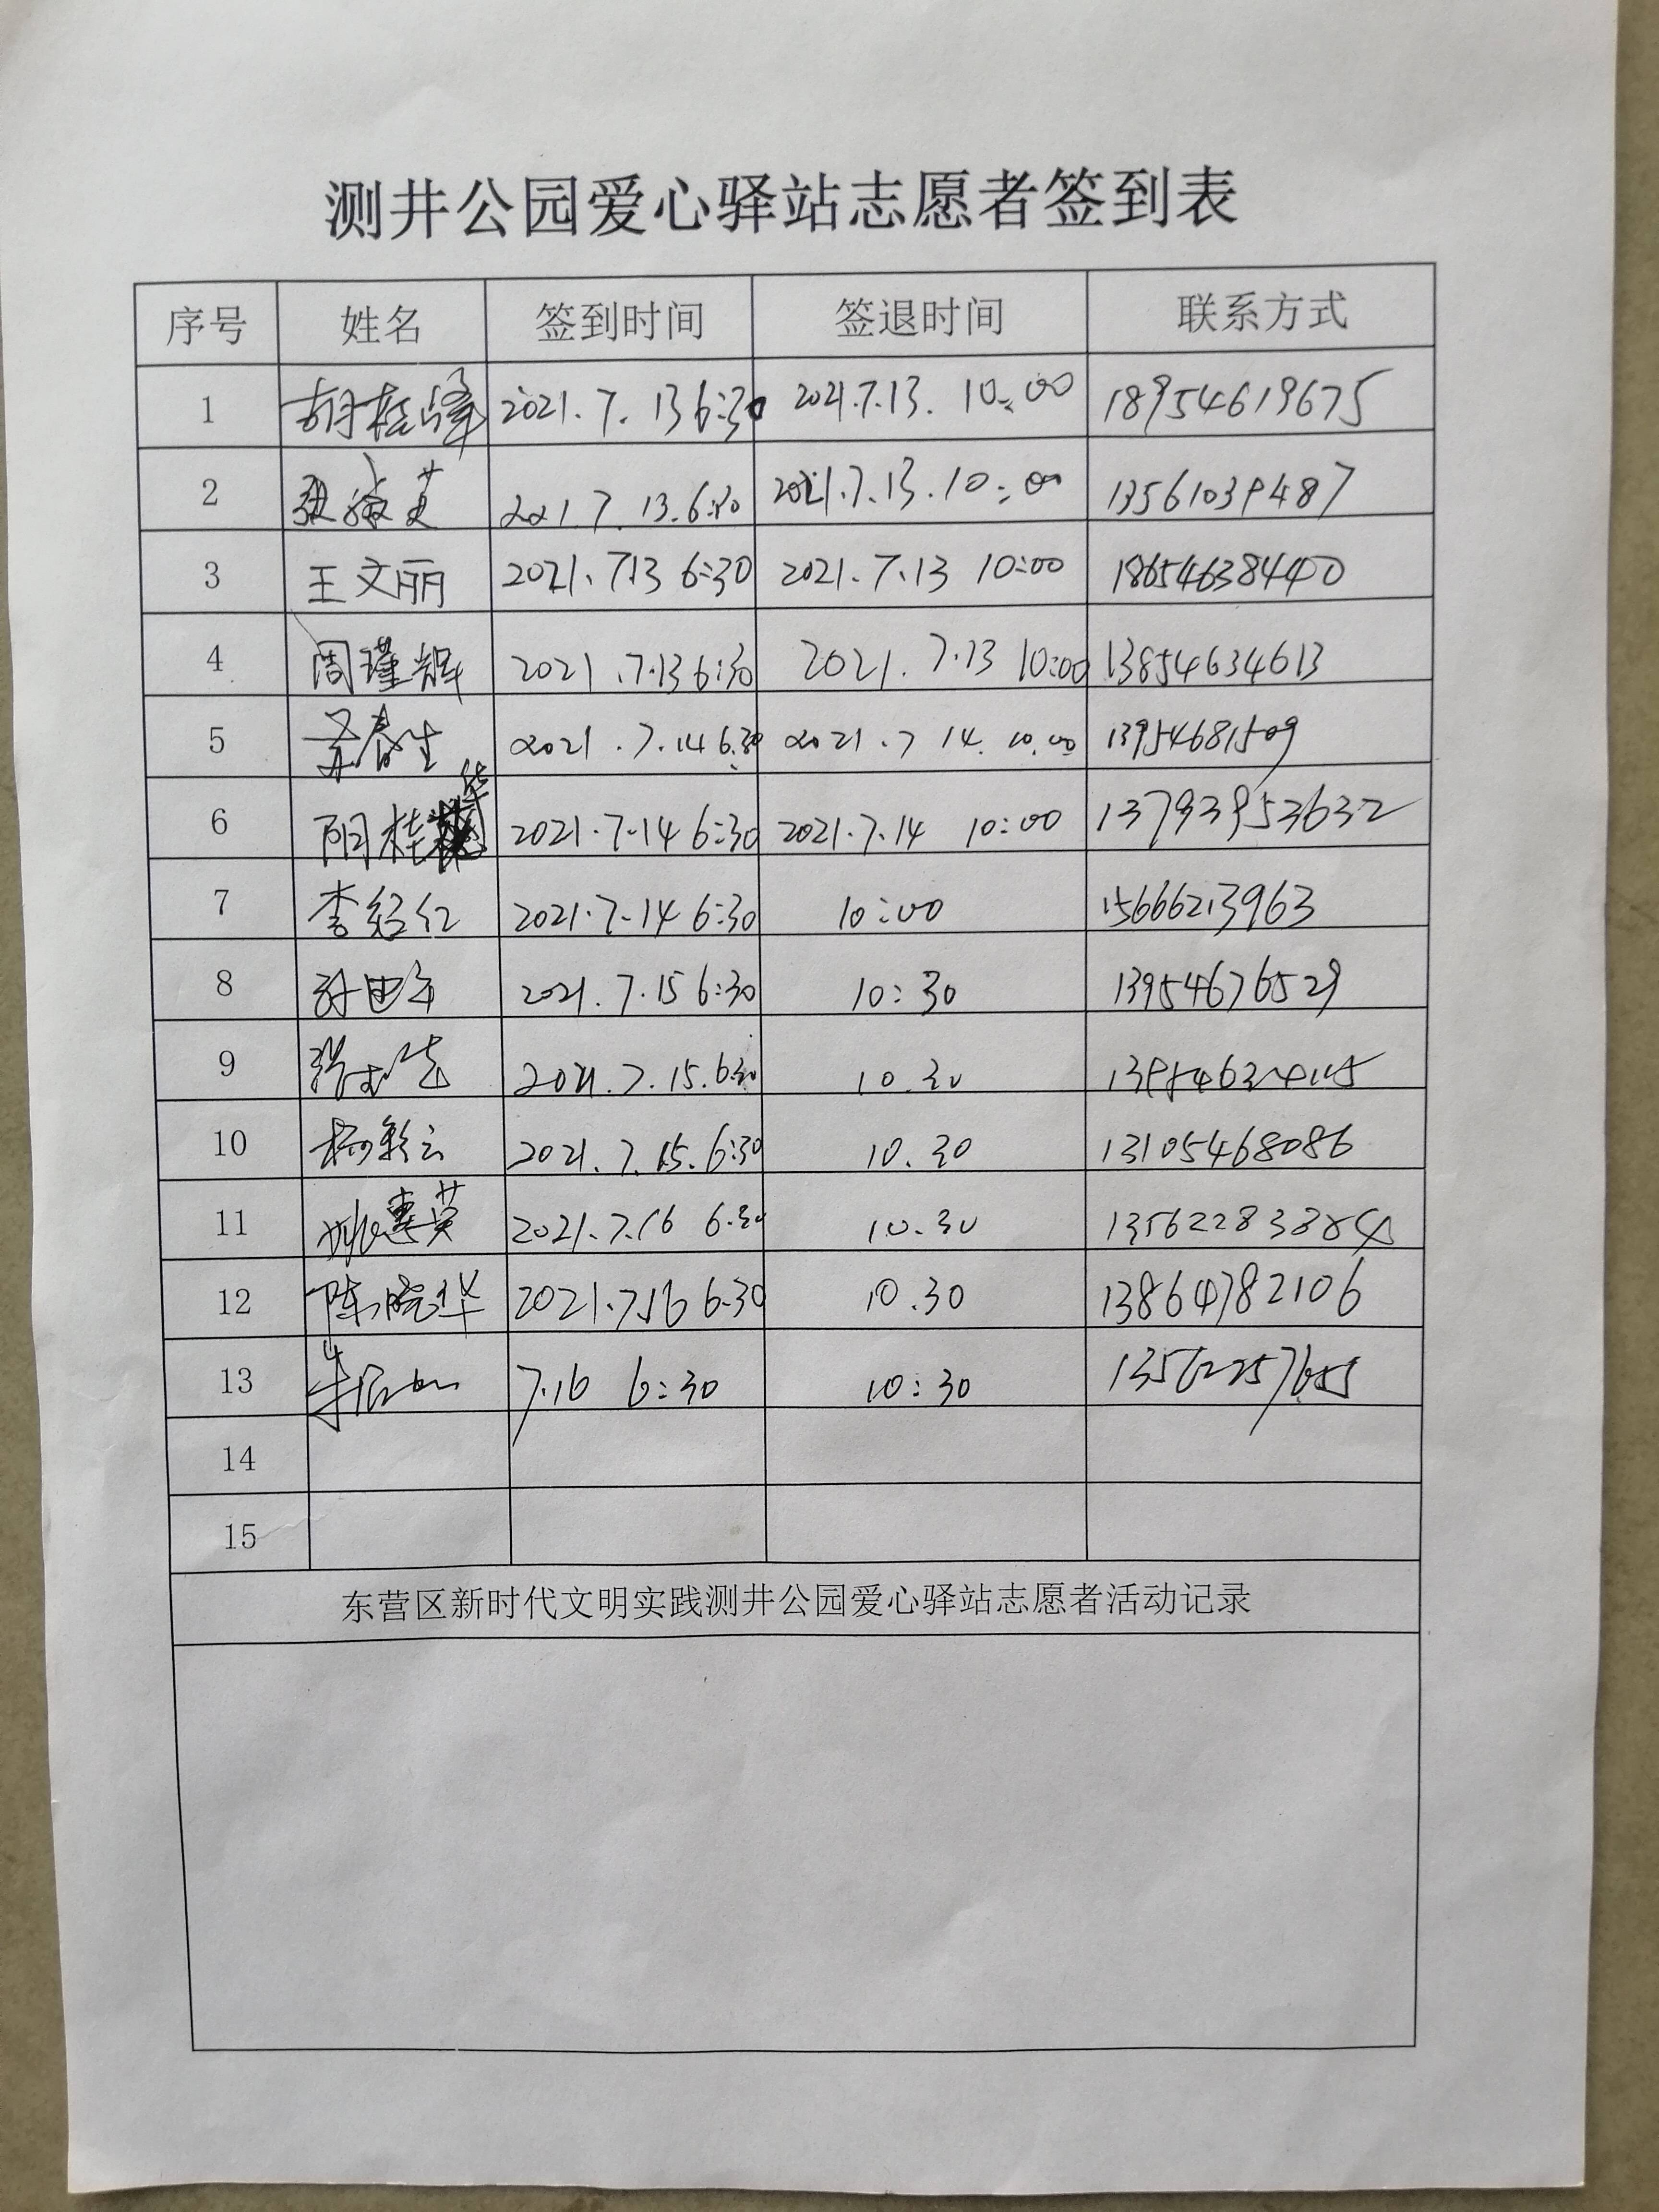 测井公园爱心驿站志愿者签到表
序号 姓名 签到时间 签退时间 联系方式
1 胡桂峰 2021.7.13 6:30 2021.7.13. 10:00 18954619675
2 2021.7.13.6:30 2021.7.13.10:00 13561039487
3 王文丽 2021.7.13 6:30 2021.7.13 10:00 18654638440
4 周瑾辉 2021.7.13 6:30 2021.7.13 10:00 13854634613
5 苏春生 2021.7.14 6:30 2021.7 14. 10.00 13954681509
6 2021.7.14 6:30 2021.7.14 10:00 13793953632
7 李绍红 2021.7.14 6:30 10:00 15666213963
8 2021.7.15 6:30 10:30 13954676529
9 2021.7.15.6:30 10.30
10 杨彩云 2021.7.15.6:30 10.30 13105468086
11 姚惠英 2021.7.16 6.30 10.30
12 陈晓华 2021.7.16 6.30 10.30 13864782106
13 7.16 6:30 10:30
14
15
东营区新时代文明实践测井公园爱心驿站志愿者活动记录